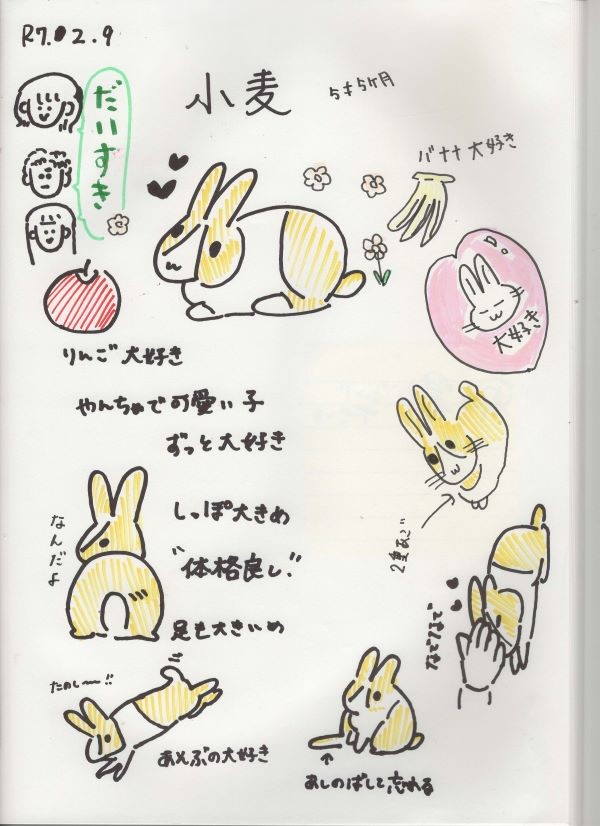 R7.02.9
小麦
5才5ヶ月
だいすき
バナナ大好き
大好き
りんご大好き
やんちゃで可愛い子
ずっと大好き
なんだよ
しっぽ大きめ
"体格良し"
足も大きいめ
2重あご
なでなで
たのしー!!
あそぶの大好き
あしのばして忘れる